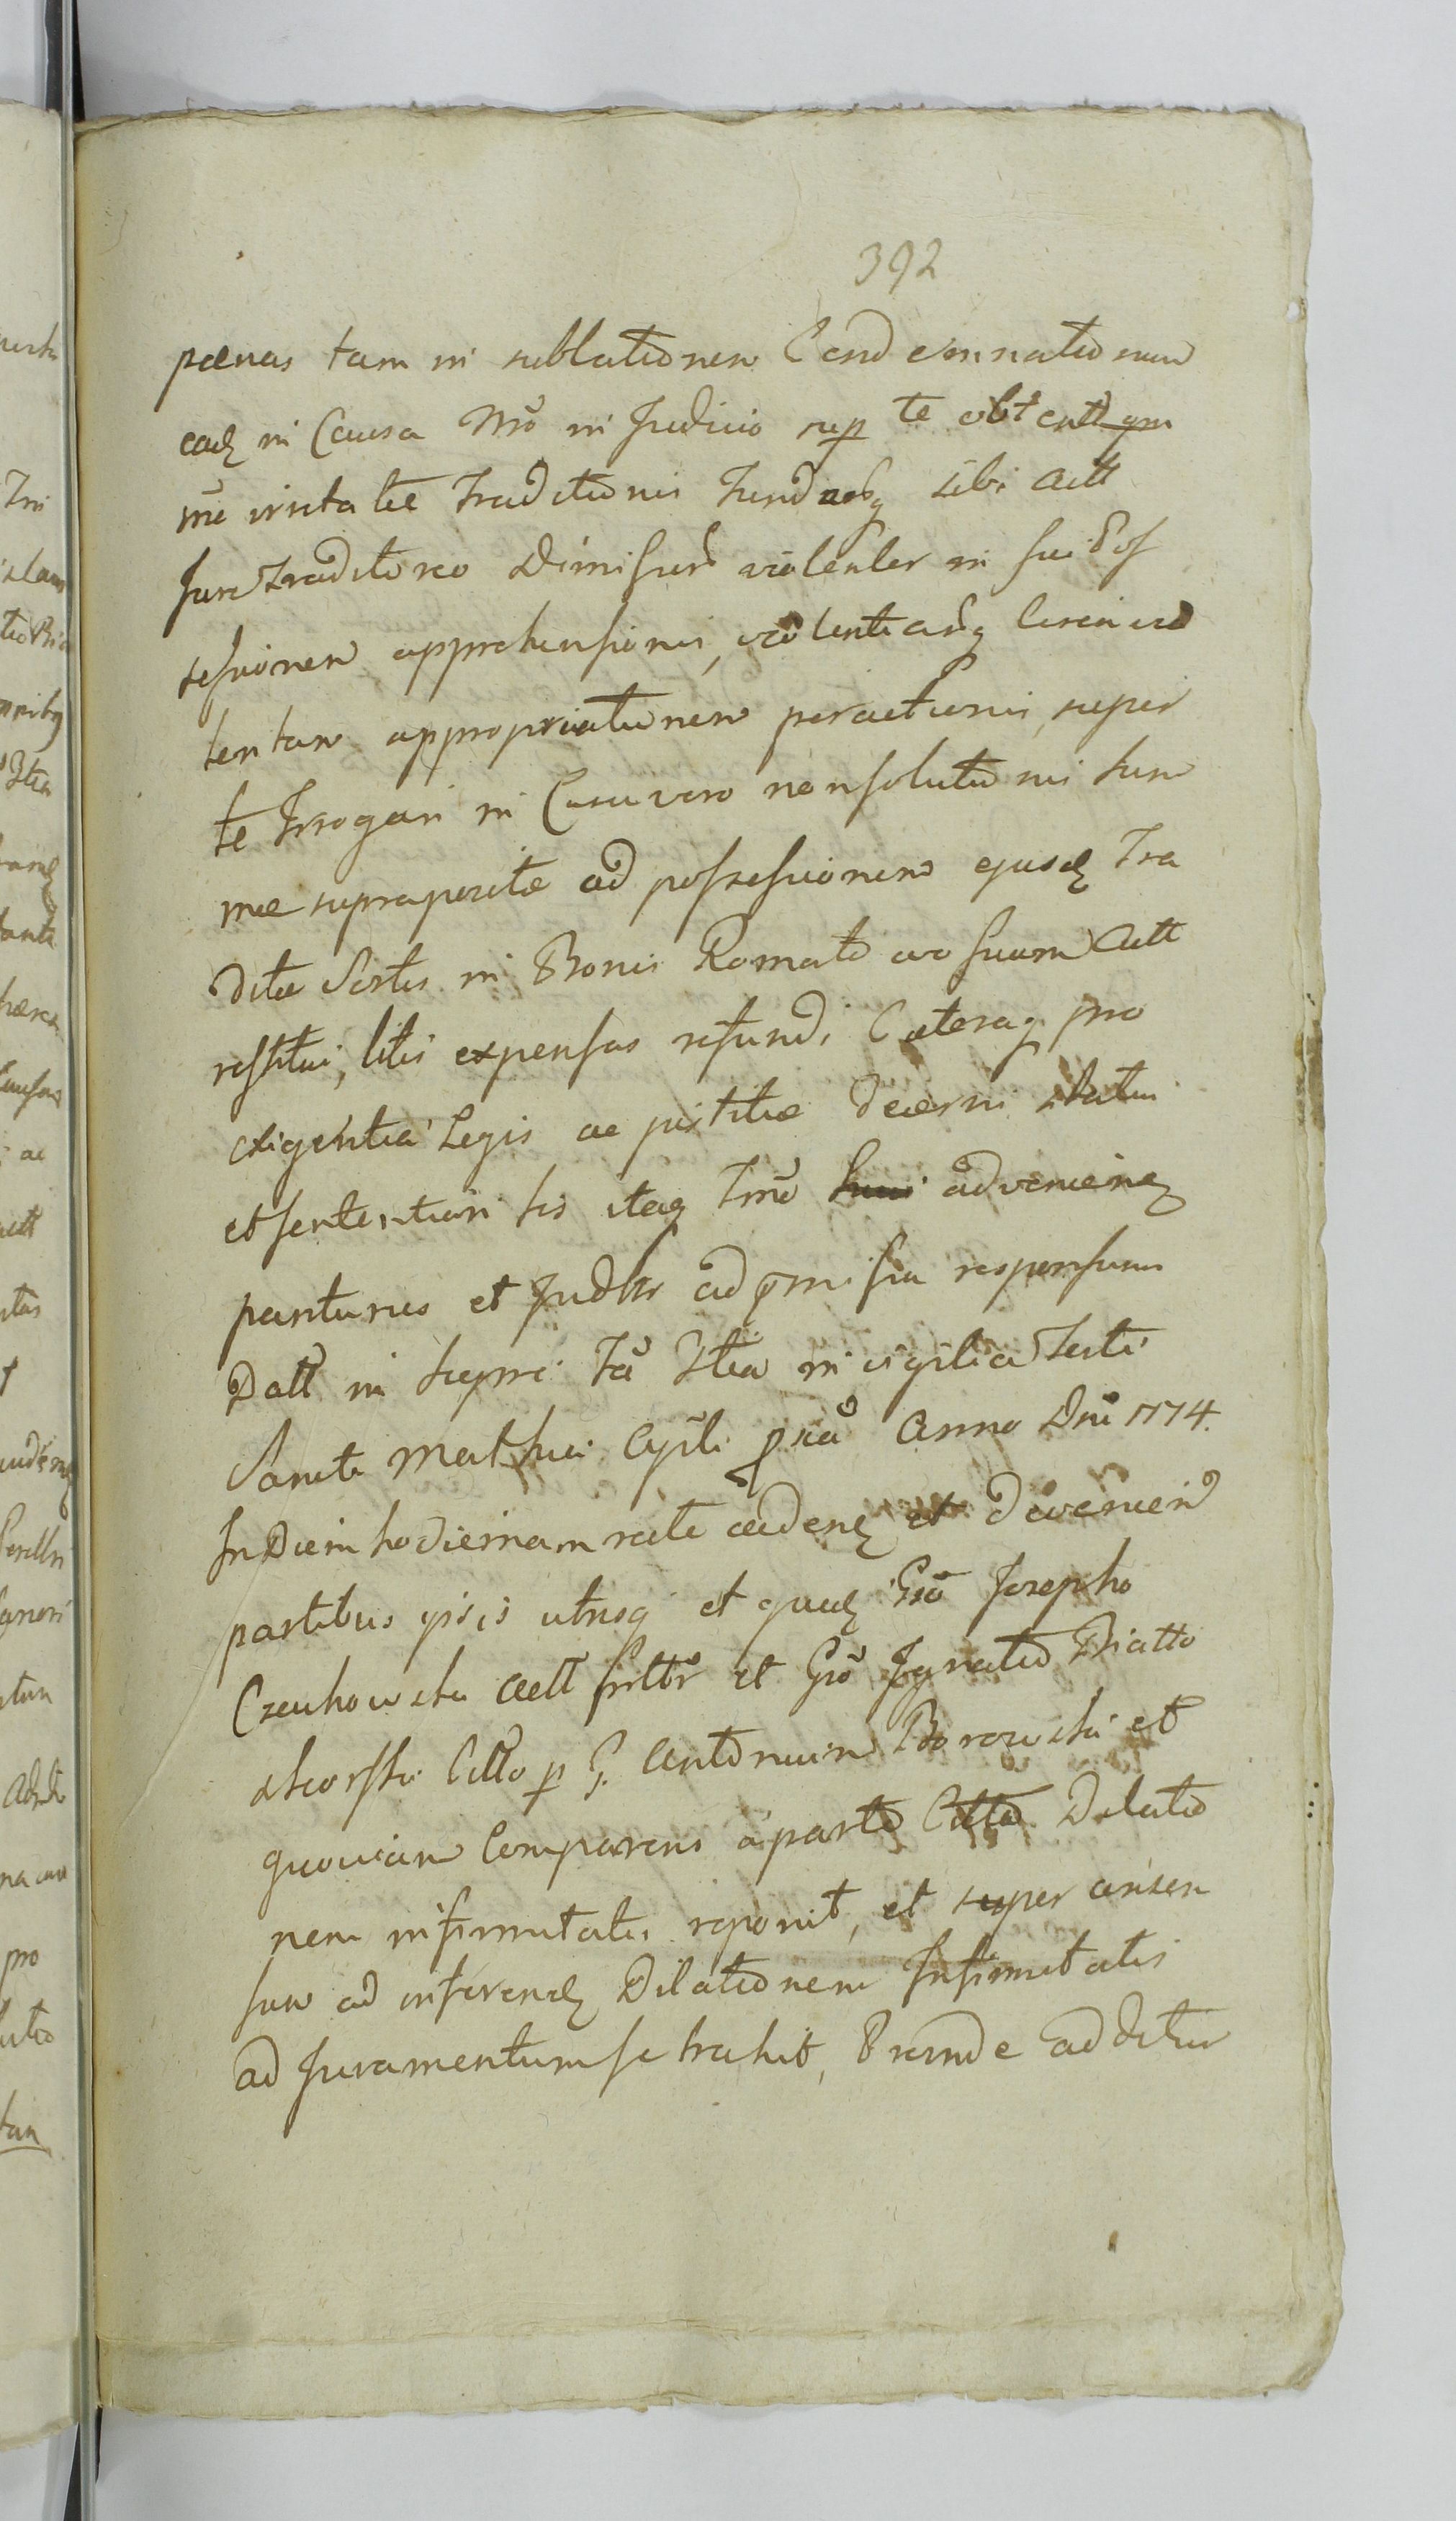 392
pœnas tam in sublationem Condemnationum
eadz in Causa Nrõ in Judicio sup te obtent
vi Traditionis sibi Actt
Jure traditorio violenter in sui Pos
sessionem apprehensionis, violentiarq
tentam appropriationem peractionis, super
te Irrogari in Casu vero nonsolutionis Sum
mæ supra positæ ad possessionem ejusdz Tra
ditæ Sortis in Bonis Romato suum Actt
restitui, litis expensas refundi Cæteraq pro
exigentia Legis ac justitiæ decerni statui
et sententiari his itaq Tmõ advenienz
pariturus et Judltr ad pmissa responsurus
Datt in Feria in vigilia Festi
Sancti Mathæi Apli Anno Dni 1774.
In Diem hodiernam rite cadenz et devenien
partibus ipsis utrisq et quidz Gsõ Josepho
Czenkowski Actt et Gsõ Ignatio Biatto
skorski Citto p G. Antonium Borowski et
quoniam Comparens a parte Citta Dilatio
nem infirmitatis reponit, et super
sum ad inferendz Dilationem Infirmitatis
ad Juramentum se trahit, Proinde additur